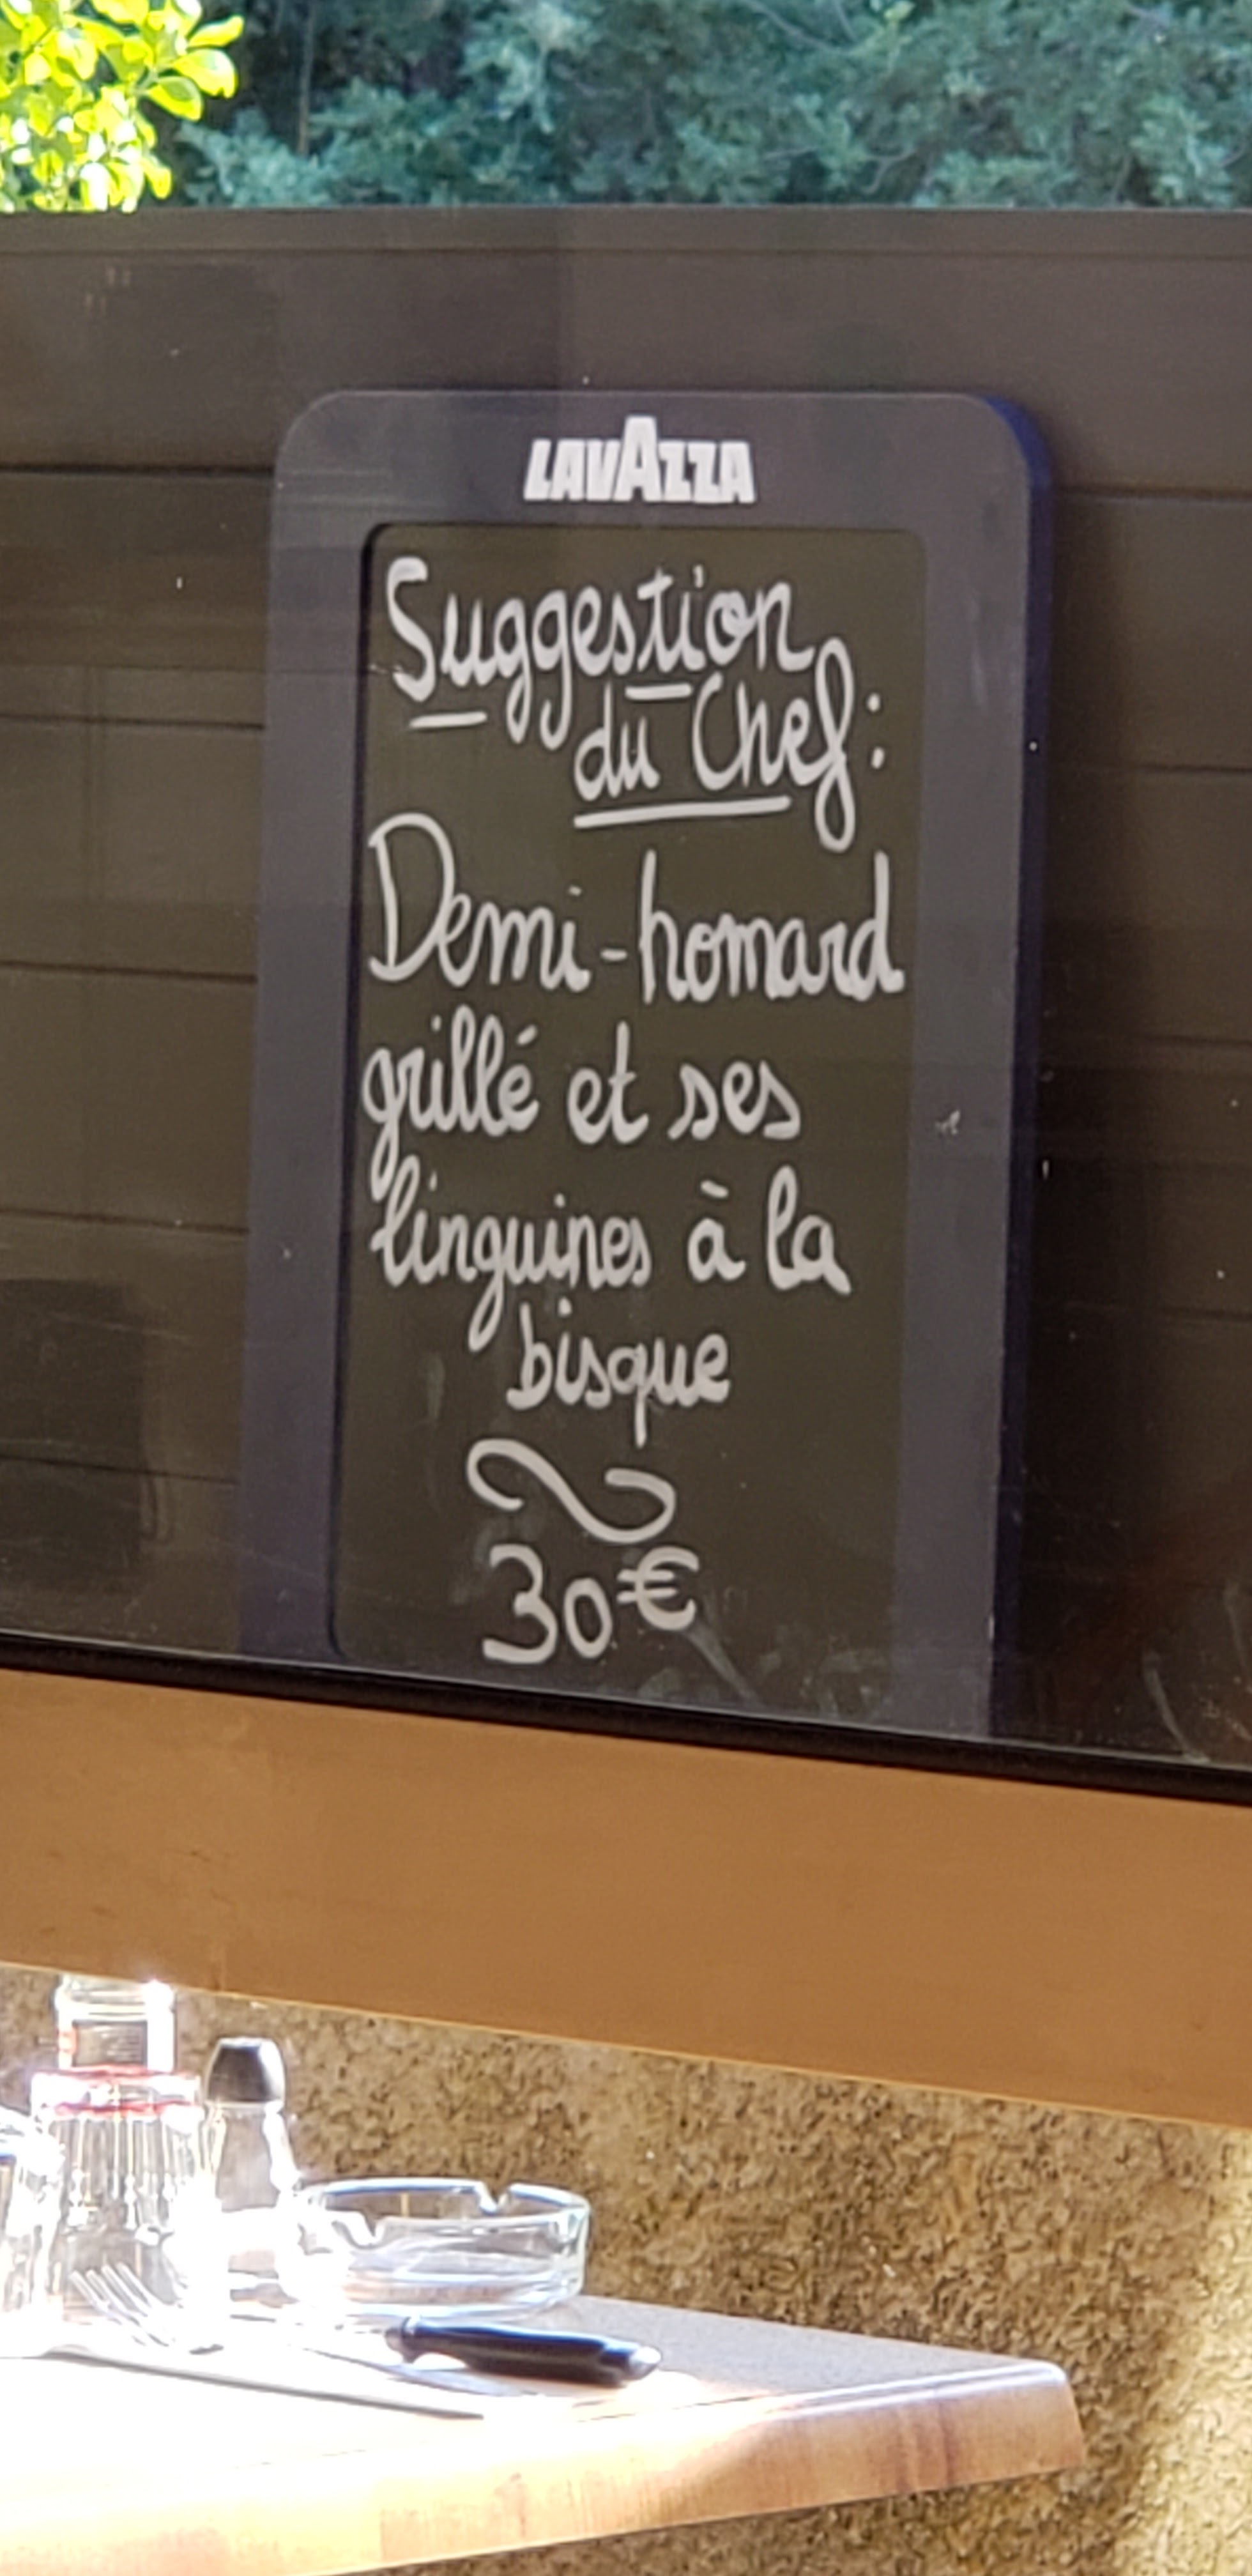 LAVAZZA
Suggestion
du Chef:
Demi-homard
grillé et ses
linguines à la
bisque
30€